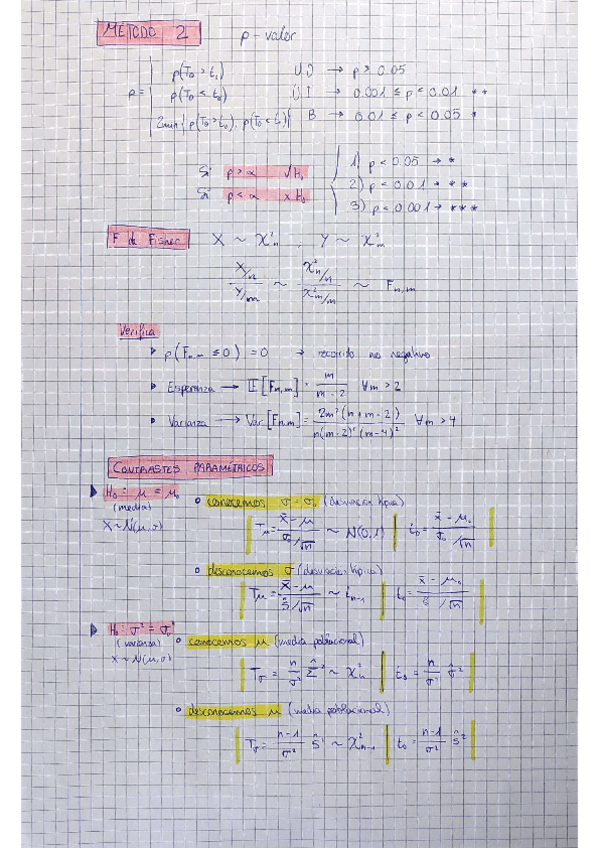 MÉTODO 2 p-valor
p(T₀ > t₀) UD → p > 0.05
p = p(T₀ < t₀) UI → 0.001 ≤ p < 0.01 **
2min{p(T₀>t₀), p(T₀<t₀)} B → 0.01 ≤ p < 0.05 *
1) p < 0.05 → *
Si p > α √H₀
2) p < 0.01 → **
Si p < α x H₀
3) p < 0.001 → ***
F de Fisher X ~ χ²ₙ , Y ~ χ²ₘ
(X/n)/(Y/m) ~ (χ²ₙ/n)/(χ²ₘ/m) ~ Fₙ,ₘ
Verifica
▸ p(Fₙ,ₘ ≤ 0) = 0 → recorrido no negativo
▸ Esperanza → E[Fₙ,ₘ] = m/(m-2) ∀m > 2
▸ Varianza → Var[Fₙ,ₘ] = 2m²(n+m-2)/(n(m-2)²(m-4)) ∀m > 4
CONTRASTES PARAMÉTRICOS
▸ H₀: μ = μ₀
(media)
X~N(μ,σ)
○ conocemos σ = σ₀ (desviación típica)
Tμ = (x̄ - μ)/(σ₀/√n) ~ N(0,1) | t₀ = (x̄ - μ₀)/(σ₀/√n)
○ desconocemos σ (desviación típica)
Tμ = (x̄ - μ)/(Ŝ/√n) ~ tₙ₋₁ | t₀ = (x̄ - μ₀)/(ŝ/√n)
▸ H₀: σ² = σ₀²
(varianza)
X~N(μ,σ)
○ conocemos μ (media poblacional)
Tσ = n/σ² Σ̂² ~ χ²ₙ | t₀ = n/σ² σ̂²
○ desconocemos μ (media poblacional)
Tσ = (n-1)/σ² Ŝ² ~ χ²ₙ₋₁ | t₀ = (n-1)/σ² ŝ²